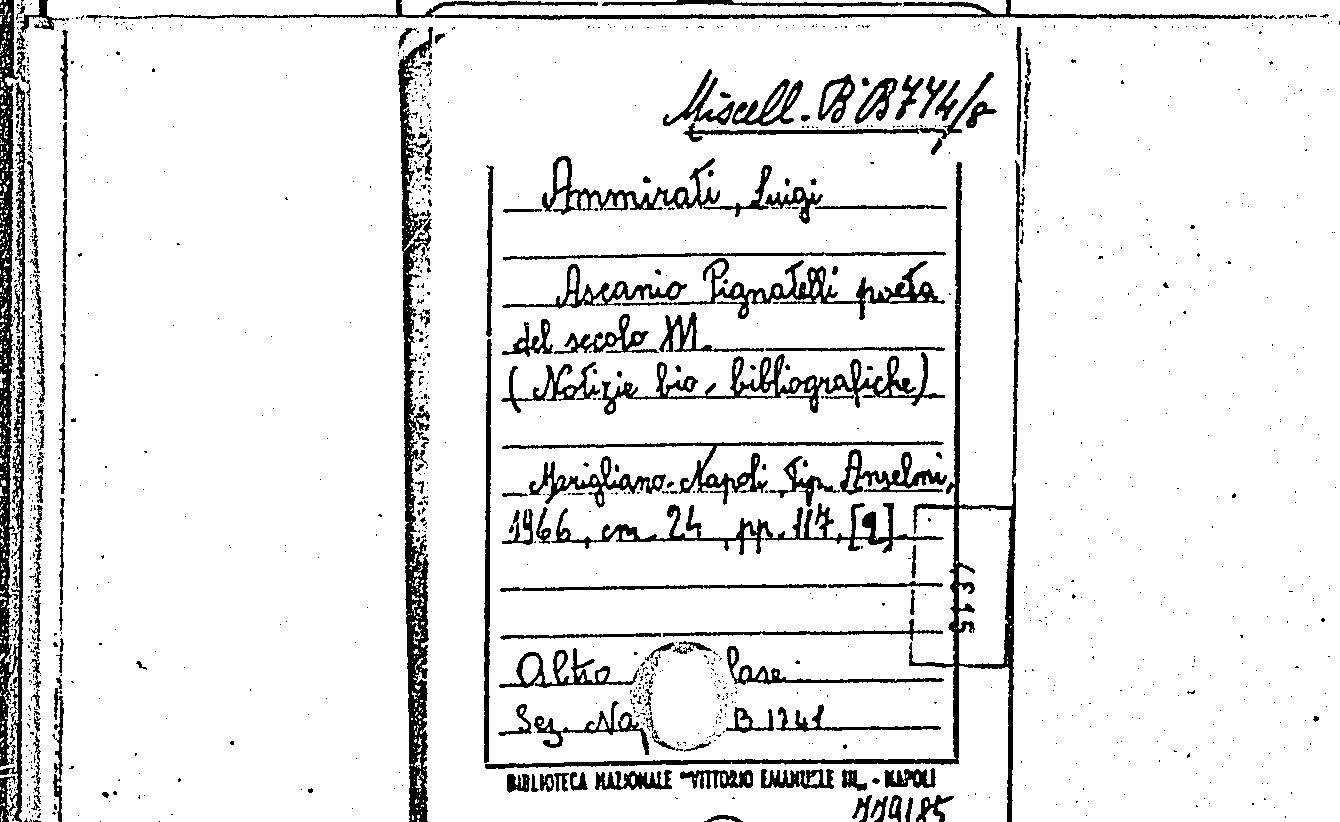 Miscell. B B 774/8
Ammirati, Luigi
Ascanio Pignatelli poeta
del secolo XVI.
(Notizie bio-bibliografiche).
Marigliano-Napoli, Tip. Anselmi,
1966, cm. 24, pp. 117, [9].
Altro
Sez. Na B 1241
BIBLIOTECA NAZIONALE "VITTORIO EMANUELE III" - NAPOLI